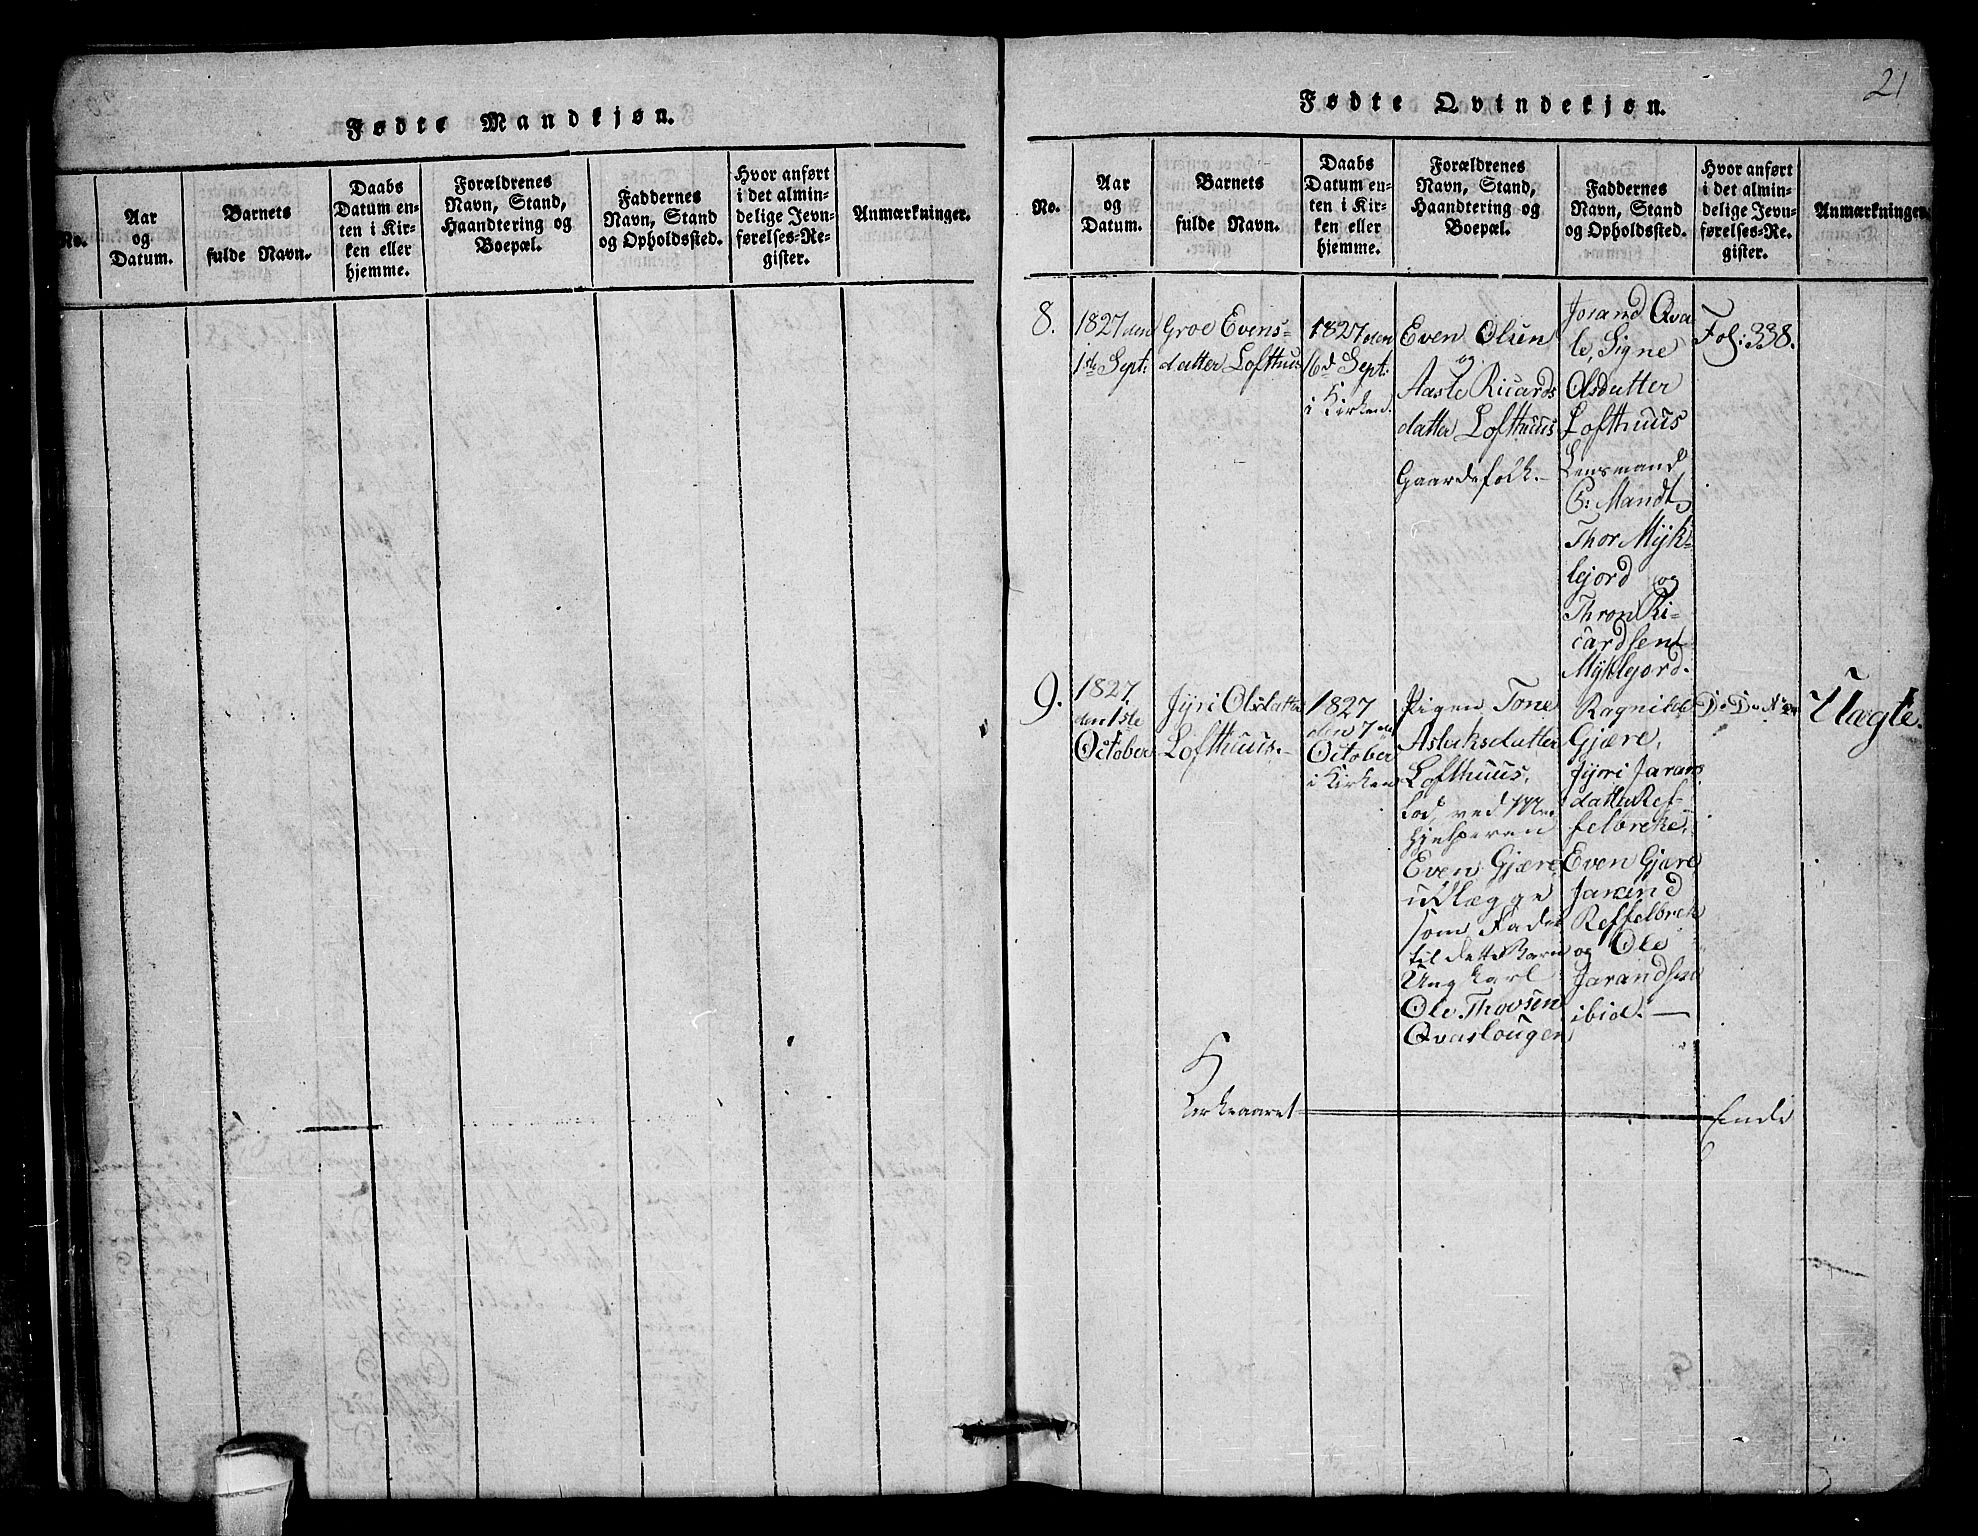 21
Fødte Mandkjøn.
No.
Aar
og
Datum.
Barnets
fulde Navn.
Daabs
Datum en-
ten i Kir-
ken eller
hjemme.
Forældrenes
Navn, Stand,
Haandtering og
Boepæl.
Faddernes
Navn, Stand
og Opholdssted.
Hvor anført
i det almin-
delige Jevn-
førelses-Re-
gister.
Anmærkninger.
Fødte Qvindekjøn.
No.
Aar
og
Datum.
Barnets
fulde Navn.
Daabs
Datum en-
ten i Kir-
ken eller
hjemme.
Forældrenes
Navn, Stand,
Haandtering og
Boepæl.
Faddernes
Navn, Stand
og Opholdssted.
Hvor anført
i det almin-
delige Jevn-
førelses-Re-
gister.
Anmærkninger.
8.
1827 den
1ste Sept:
Groe Evens-
datter Lofthuus
1827 den
16d Sept:
i Kirken.
Even Olsen
og
Aaste Ricards
datter Lofthuus
Gaardefolk.-
Jorand Qva
le, Signe
Olsdatter
Lofthuus
Lensmand
C: Mandt
Thor Mÿk-
lejord og
Thron Ri-
cardsen
Mÿklejord.
Fol: 338.
9.
1827
den 1ste
October
Jÿri Olsdatter
Lofthuus.-
1827
den 7de
October
i Kirken
Pigen Tone
Aslaksdatter
Lofthuus,
lod, ved Med
hjelperen
Even Gjære
udlægge
som Fader
til dette Barn
Ungkarl
Ole Thovsen
Qvaslougen
Ragnild
Gjære,
Jÿri Jarans
datter Ref-
felbreke,
Even Gjære
Jarand
Reffelbrek
og Ole
Jarandsen
ibid.-
Uægte.
Kirkeaaret
Ende